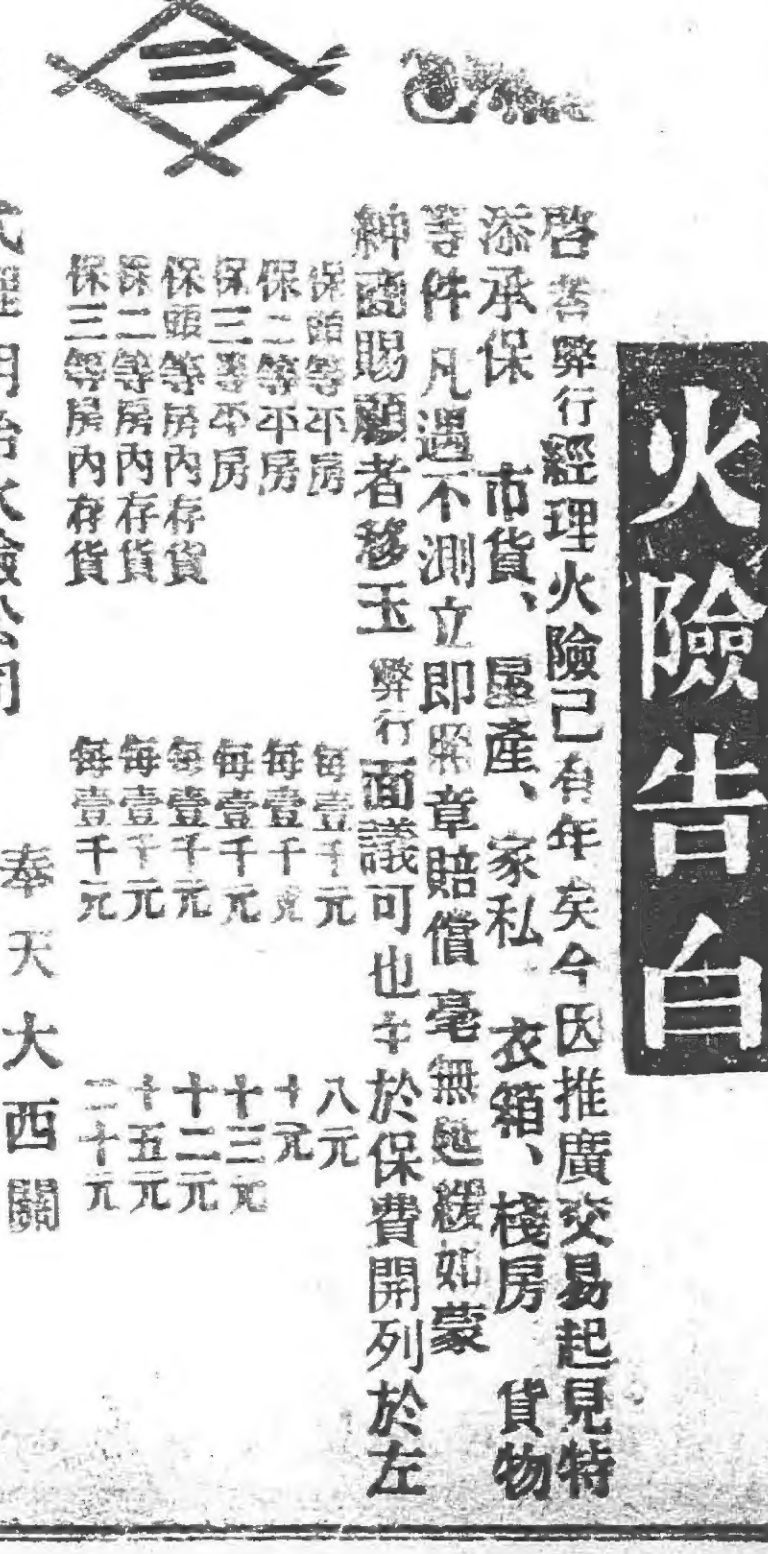 火險告白
啓者弊行經理火險己有年矣今因推廣交易起見特
添承保 市貨、產、家私 衣箱、棧房 貨物
等件凡遇不測立即照章賠償毫無延緩如蒙
紳商賜顧者移玉弊行面議可也至於保費開列於左
保頭等平房 每壹千元 八元
保二等平房 每壹千元 十元
保三等平房 每壹千元 十三元
保頭等房內存貨 每壹千元 十二元
保二等房內存貨 每壹千元 十五元
保三等房內存貨 每壹千元 二十元
代理明治火險公司 奉天大西關